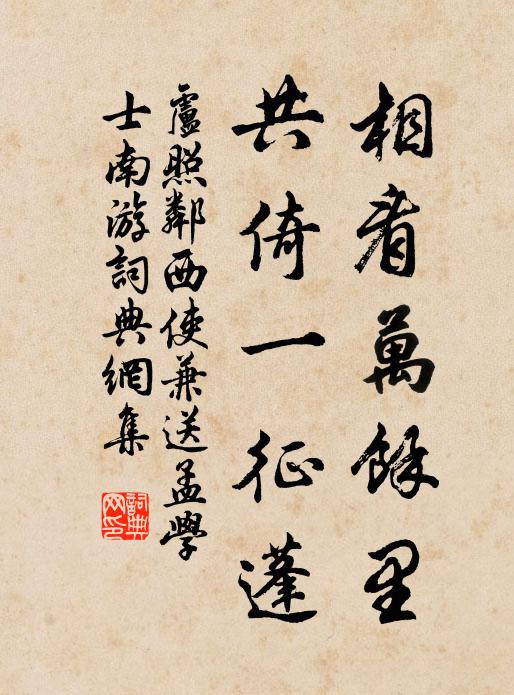 相看萬餘里
共倚一征蓬
盧照鄰西使兼送孟學
士南游詞典網集
詞典網印